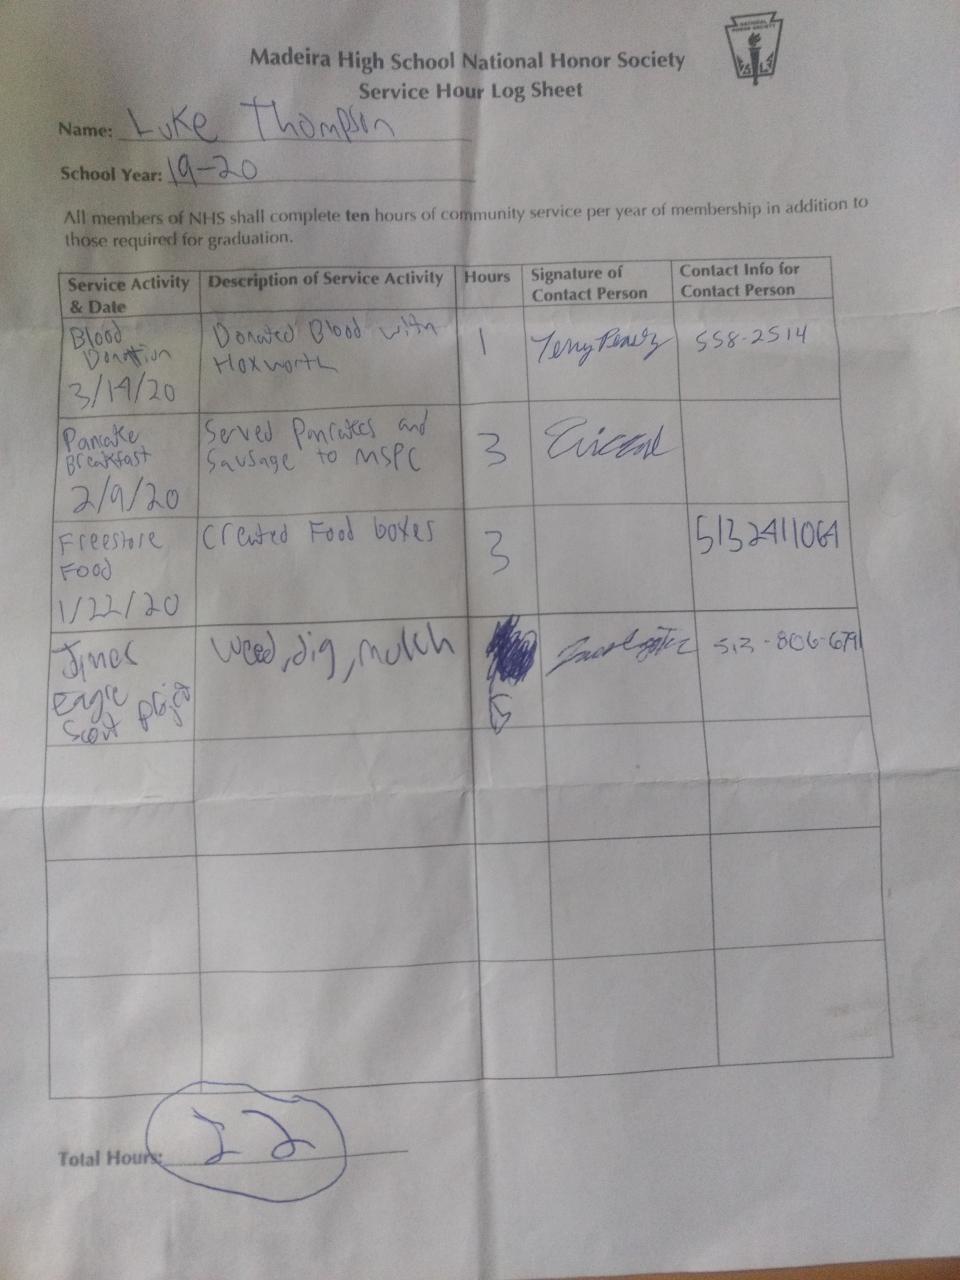 NATIONAL
HONOR SOCIETY
Madeira High School National Honor Society
Service Hour Log Sheet
Name: Luke Thompson
School Year: 19-20
All members of NHS shall complete ten hours of community service per year of membership in addition to
those required for graduation.
Service Activity
& Date
Description of Service Activity
Hours
Signature of
Contact Person
Contact Info for
Contact Person
Blood
Donation
3/14/20
Donated Blood with
Hoxworth
1
Terry
558-2514
Pancake
Breakfast
2/9/20
Served Pancakes and
Sausage to MSPC
3
Freestore
Food
1/22/20
Created Food boxes
3
5132411064
Eagle
Scout project
Weed, dig, mulch
513-806-6791
Total Hours: 22